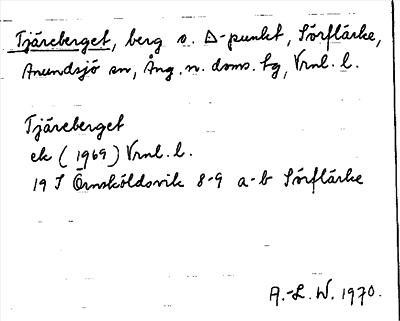 Tjäreberget, berg o. Δ-punkt, Sörflärke,
Anundsjö sn, Ång. n. doms. tg, Vrnl. l.
Tjäreberget
ek (1969) Vrnl. l.
19 I Örnsköldsvik 8-9 a-b Sörflärke
A.-L. W. 1970.